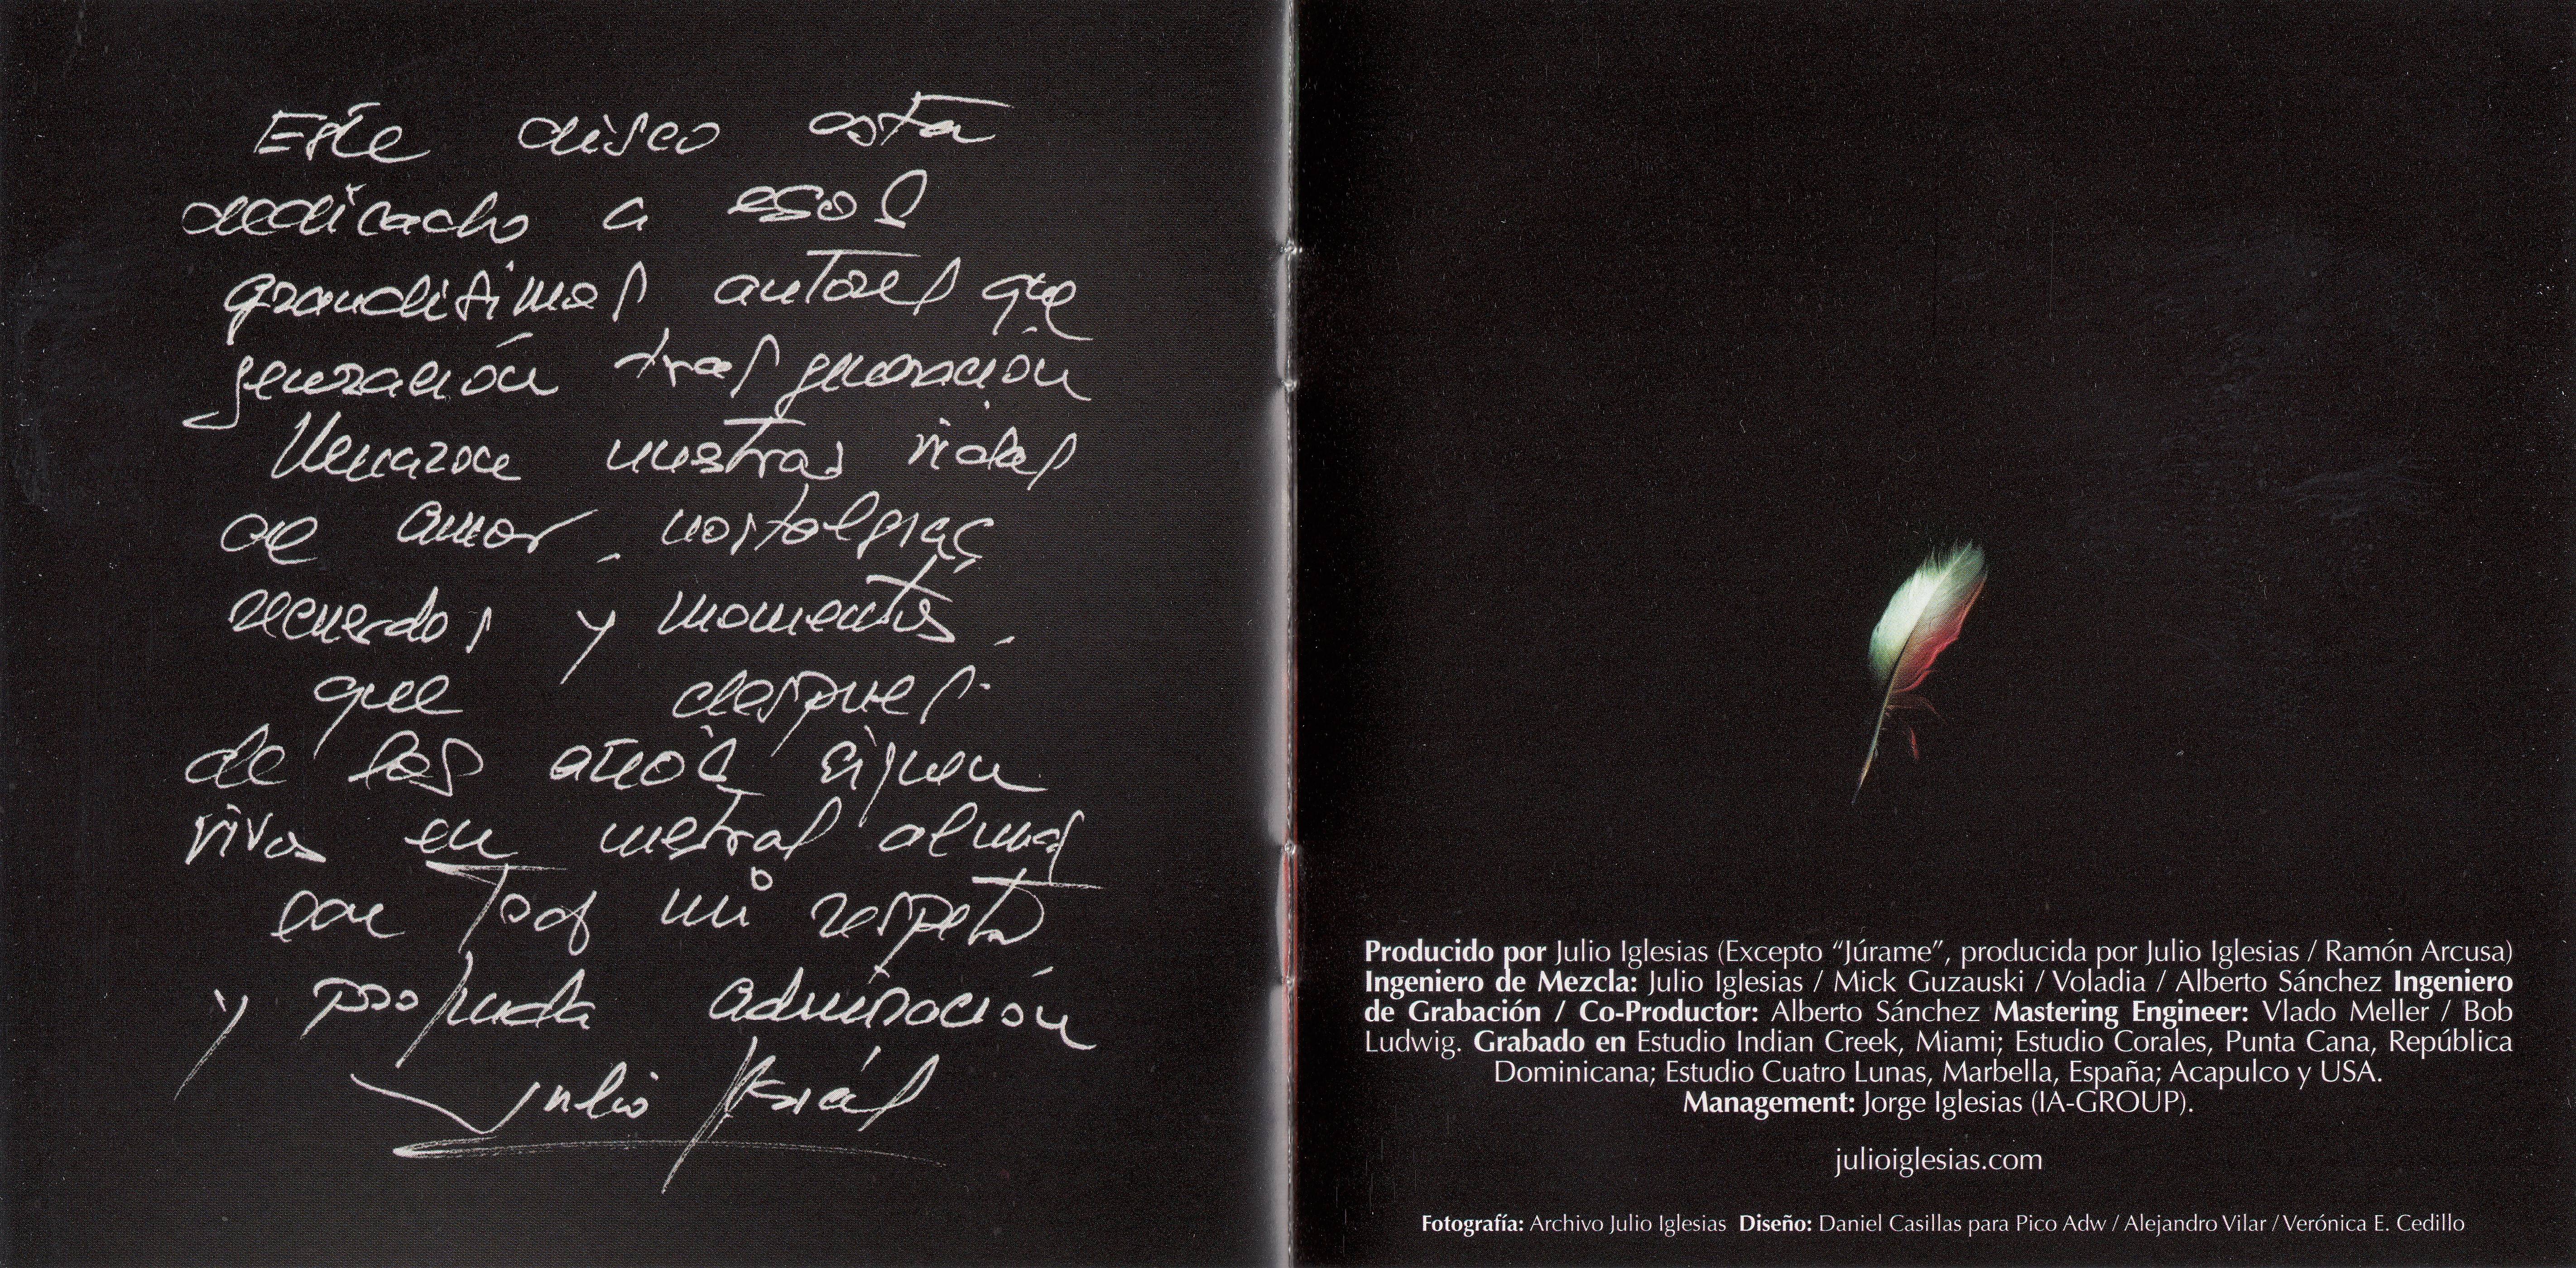 Este disco esta
dedicado a esos
grandisimos autores que
generación tras generación
llenaron nuestras vidas
de amor, nostalgias,
recuerdos y momentos,
que despues
de los años siguen
vivos en nuestras almas
con todo mi respeto
y profunda admiración
Julio Iglesias
Producido por Julio Iglesias (Excepto “Júrame”, producida por Julio Iglesias / Ramón Arcusa)
Ingeniero de Mezcla: Julio Iglesias / Mick Guzauski / Voladia / Alberto Sánchez Ingeniero
de Grabación / Co-Productor: Alberto Sánchez Mastering Engineer: Vlado Meller / Bob
Ludwig. Grabado en Estudio Indian Creek, Miami; Estudio Corales, Punta Cana, República
Dominicana; Estudio Cuatro Lunas, Marbella, España; Acapulco y USA.
Management: Jorge Iglesias (IA-GROUP).
julioiglesias.com
Fotografía: Archivo Julio Iglesias Diseño: Daniel Casillas para Pico Adw / Alejandro Vilar / Verónica E. Cedillo